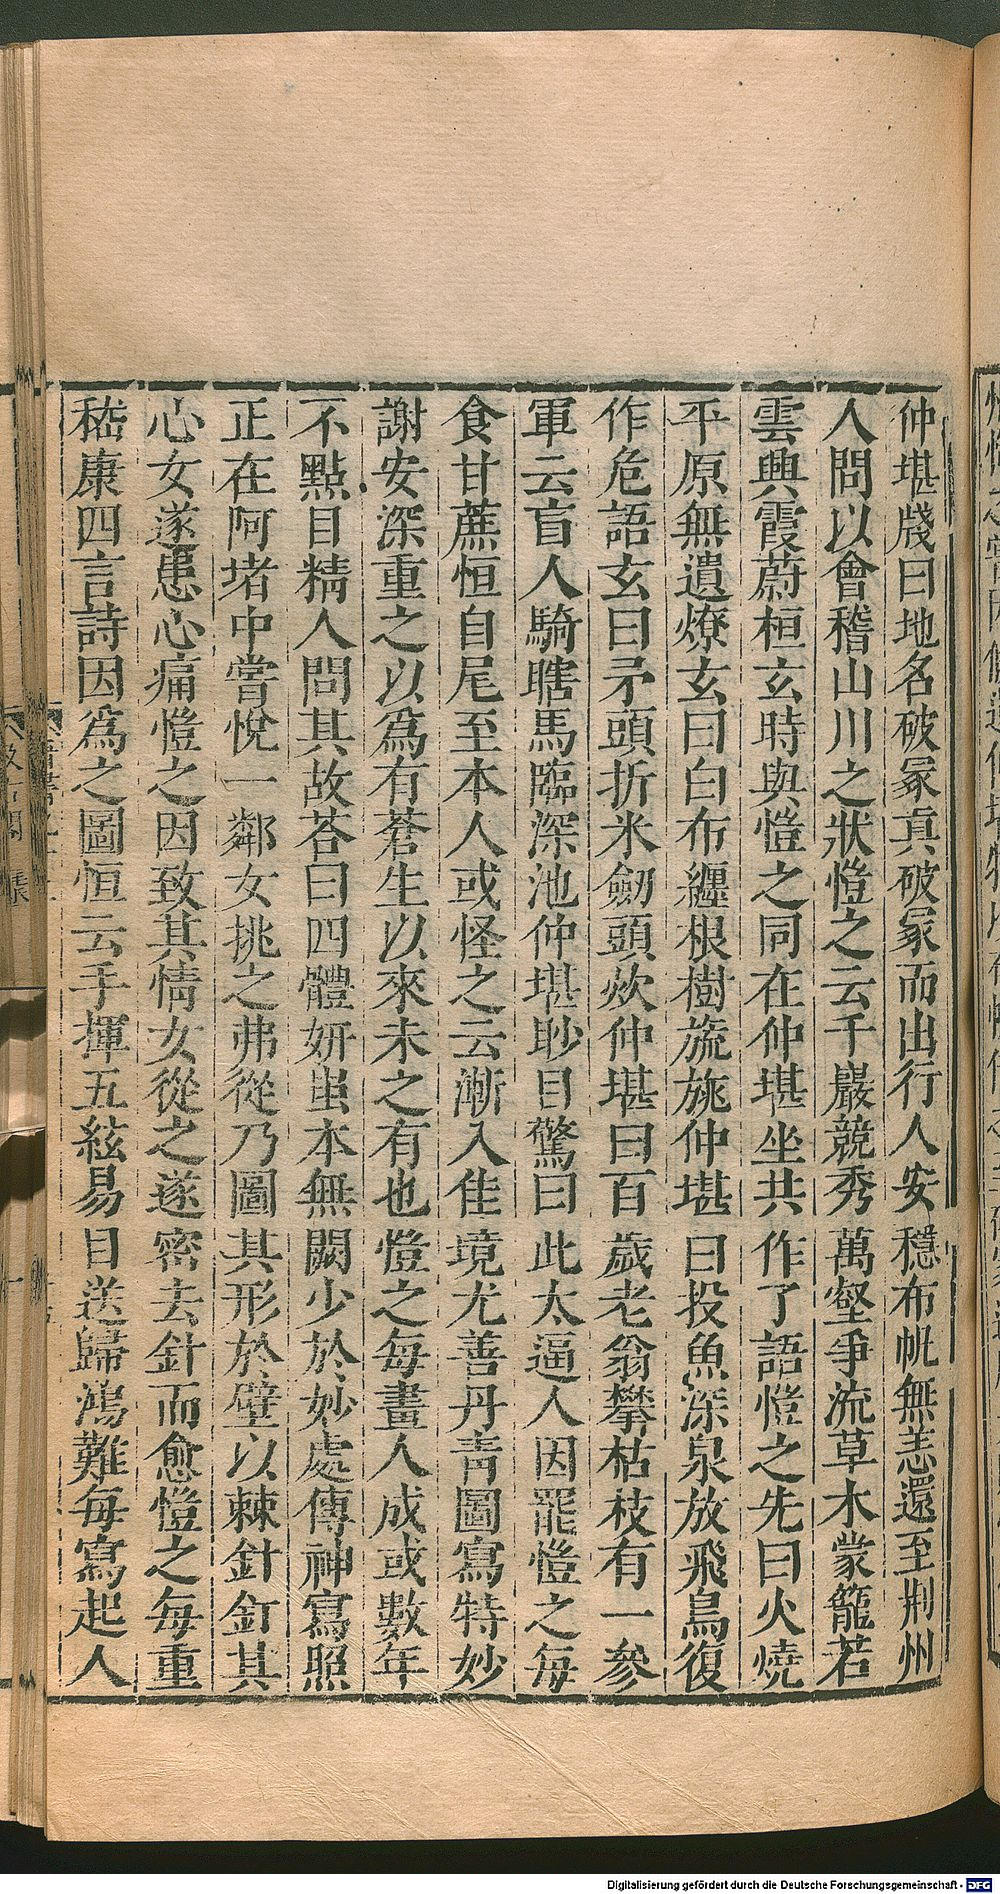 仲堪牋曰地名破冢真破冢而出行人安穩布帆無恙還至荆州
人問以會稽山川之狀愷之云千巖競秀萬壑爭流草木蒙籠若
雲興霞蔚桓玄時與愷之同在仲堪坐共作了語愷之先曰火燒
平原無遺燎玄曰白布纏根樹旒旐仲堪曰投魚深泉放飛鳥復
作危語玄曰矛頭折米劒頭炊仲堪曰百歲老翁攀枯枝有一參
軍云盲人騎瞎馬臨深池仲堪眇目驚曰此太逼人因罷愷之每
食甘蔗恒自尾至本人或怪之云漸入佳境尤善丹靑圖寫特妙
謝安深重之以爲有蒼生以來未之有也愷之每畫人成或數年
不點目精人問其故荅曰四體妍蚩本無闕少於妙處傳神寫照
正在阿堵中嘗悅一鄰女挑之弗從乃圖其形於壁以棘針釘其
心女遂患心痛愷之因致其情女從之遂密去針而愈愷之每重
嵇康四言詩因爲之圖恒云手揮五絃易目送歸鴻難每寫起人
Digitalisierung gefördert durch die Deutsche Forschungsgemeinschaft - DFG